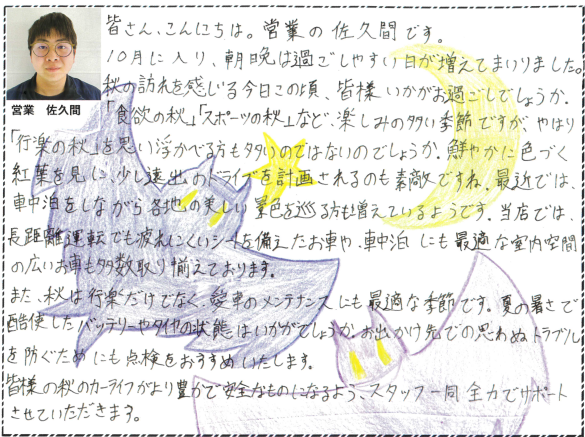 皆さん、こんにちは。営業の佐久間です。
10月に入り、朝晩は過ごしやすい日が増えてまいりました。
秋の訪れを感じる今日この頃、皆様いかがお過ごしでしょうか。
営業 佐久間
「食欲の秋」「スポーツの秋」など、楽しみの多い季節ですが、やはり
「行楽の秋」を思い浮かべる方も多いのではないのでしょうか。鮮やかに色づく
紅葉を見に、少し遠出のドライブを計画されるのも素敵ですね。最近では、
車中泊をしながら各地の美しい景色を巡る方も増えているようです。当店では、
長距離運転でも疲れにくいシートを備えたお車や、車中泊にも最適な室内空間
の広いお車も多数取り揃えております。
また、秋は行楽だけでなく、愛車のメンテナンスにも最適な季節です。夏の暑さで
酷使したバッテリーやタイヤの状態はいかがでしょうか。お出かけ先での思わぬトラブル
を防ぐためにも点検をおすすめいたします。
皆様の秋のカーライフがより豊かで安全なものになるよう、スタッフ一同全力でサポート
させていただきます。